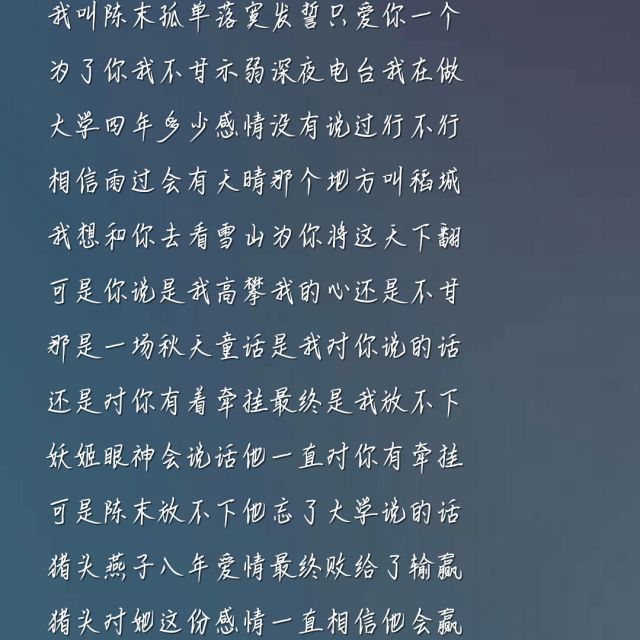 我叫陈末孤单落寞发誓只爱你一个
为了你我不甘示弱深夜电台我在做
大学四年多少感情没有说过行不行
相信雨过会有天晴那个地方叫稻城
我想和你去看雪山为你将这天下翻
可是你说是我高攀我的心还是不甘
那是一场秋天童话是我对你说的话
还是对你有着牵挂最终是我放不下
妖姬眼神会说话他一直对你有牵挂
可是陈末放不下他忘了大学说的话
猪头燕子八年爱情最终败给了输赢
猪头对她这份感情一直相信他会赢